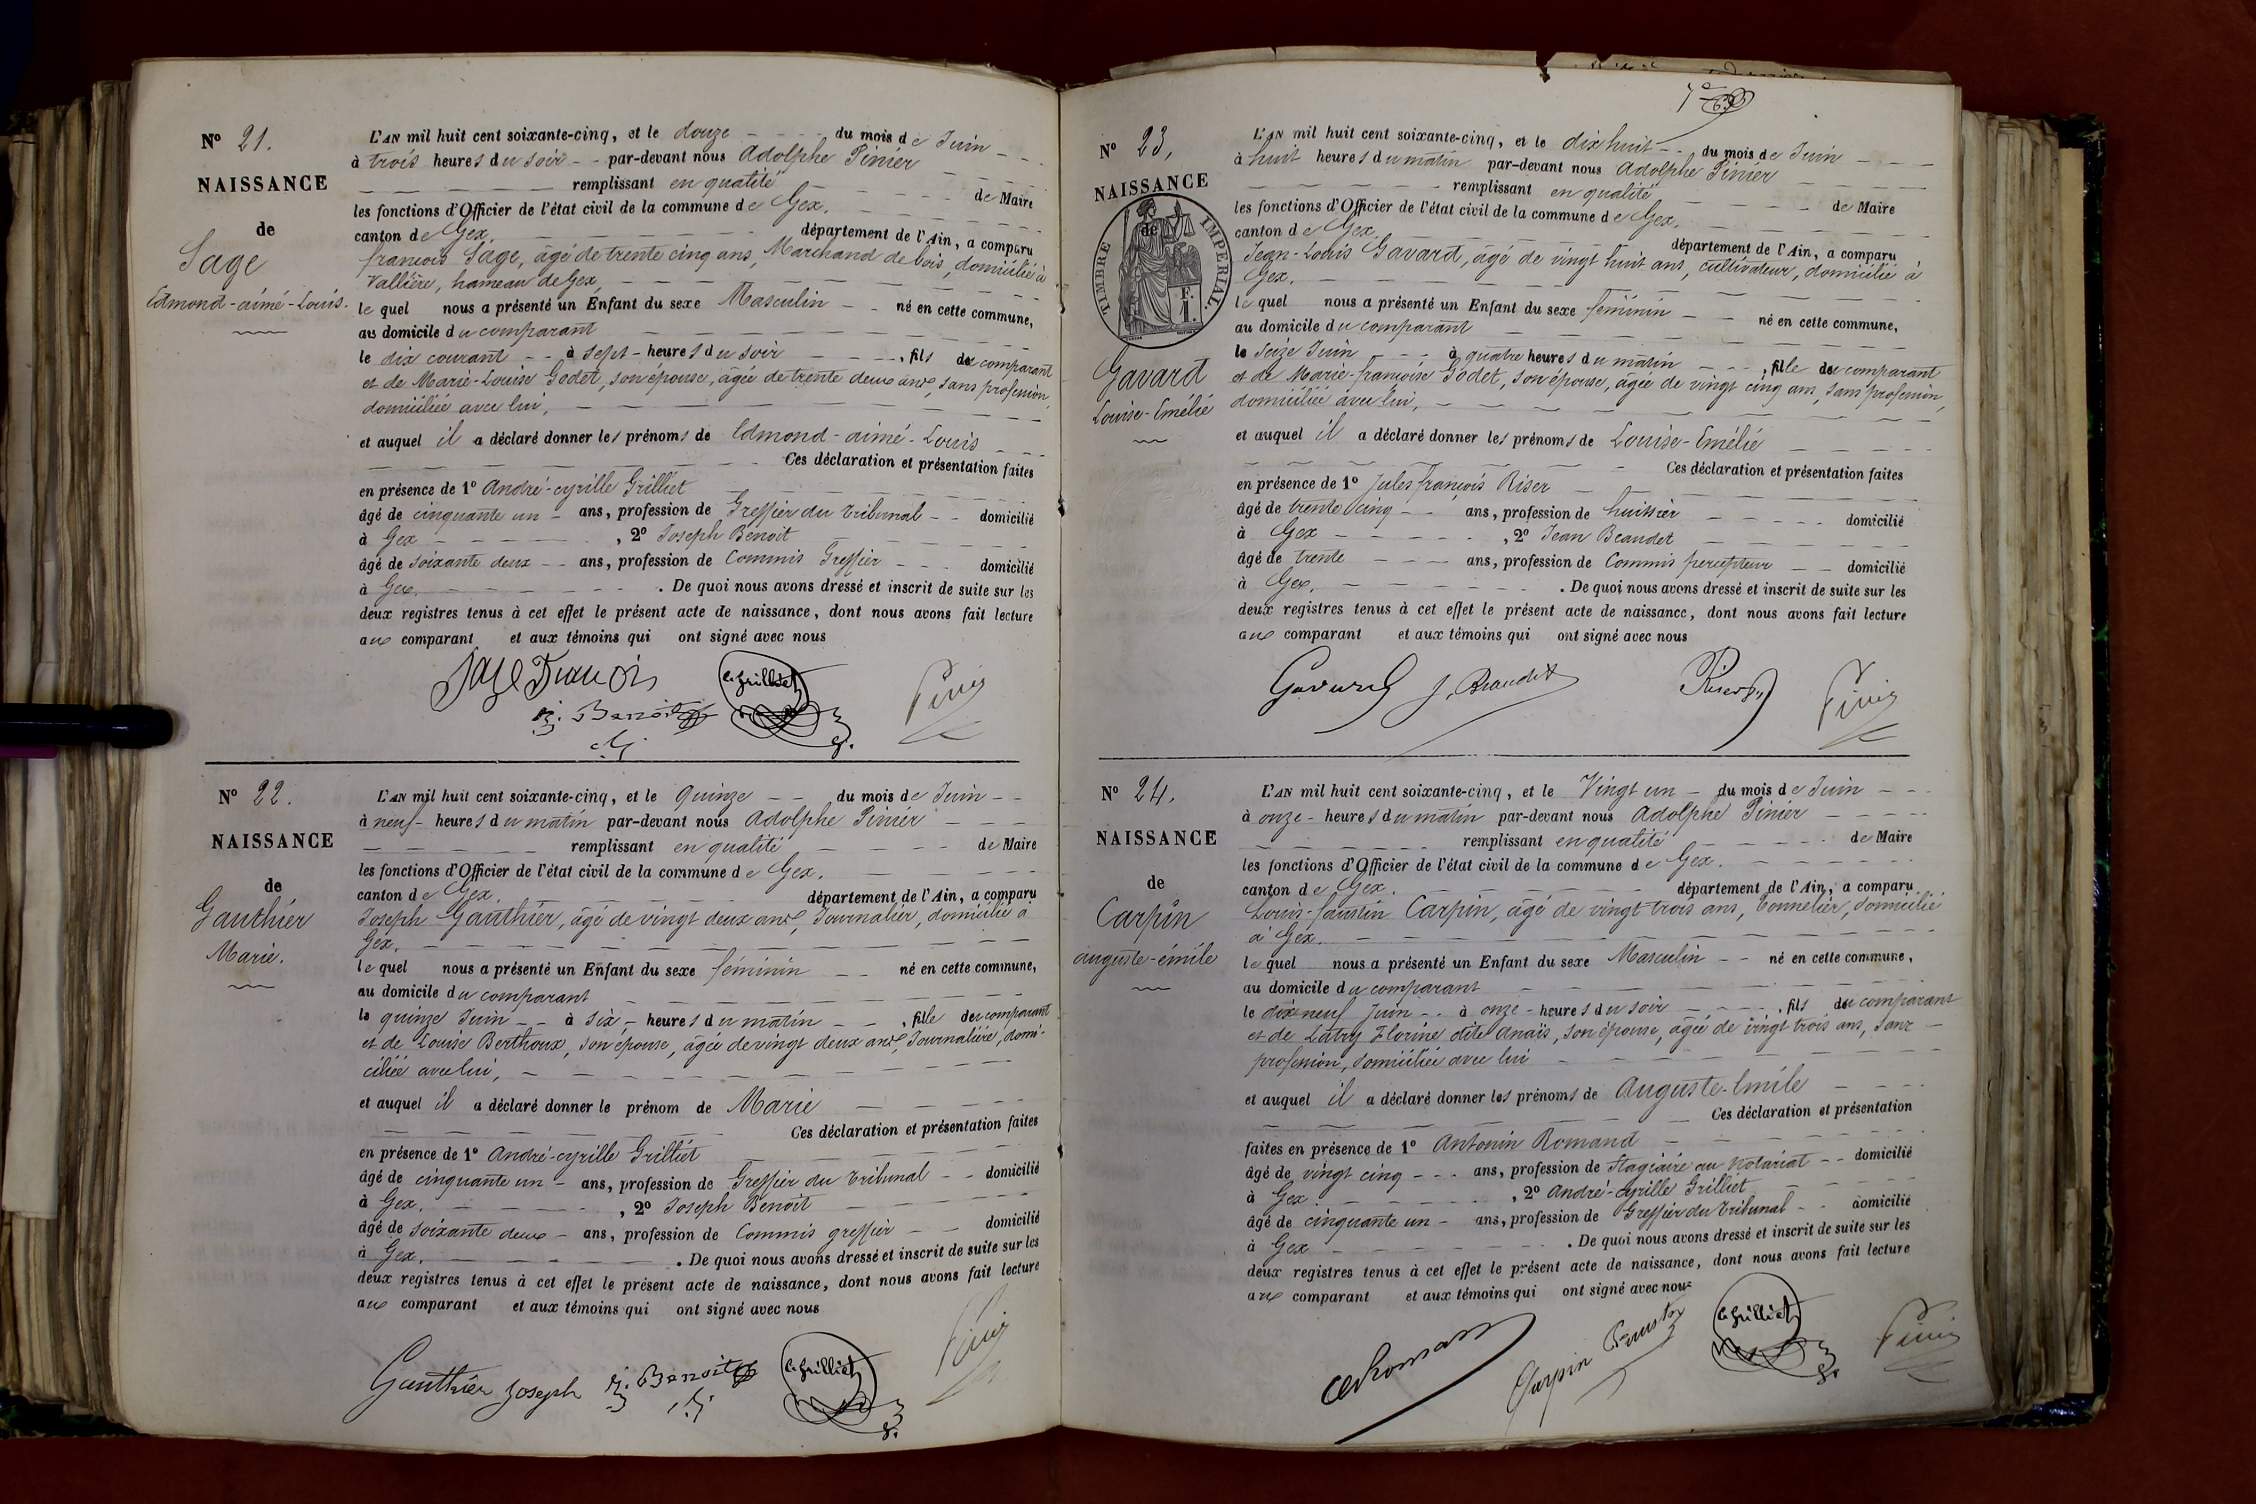 N° 21.
NAISSANCE
de
Sage
Edmond-aimé-Louis.
L'AN mil huit cent soixante-cinq, et le douze du mois de Juin
à trois heures du soir par-devant nous Adolphe Pinier
remplissant en qualité de Maire
les fonctions d'Officier de l'état civil de la commune de Gex.
canton de Gex. département de l'Ain, a comparu
françois Sage, âgé de trente cinq ans, Marchand de bois, domicilié à
Vallière, hameau de Gex,
le quel nous a présenté un Enfant du sexe Masculin né en cette commune,
au domicile du comparant
le dix courant à sept heures du soir, fils du comparant
et de Marie-Louise Godet, son épouse, âgée de trente deux ans, sans profession,
domiciliée avec lui,
et auquel il a déclaré donner les prénoms de Edmond-aimé-Louis
Ces déclaration et présentation faites
en présence de 1° André-cyrille Grilliet
âgé de cinquante un ans, profession de Greffier du tribunal domicilié
à Gex, 2° Joseph Benoit
âgé de soixante deux ans, profession de Commis Greffier domicilié
à Gex. De quoi nous avons dressé et inscrit de suite sur les
deux registres tenus à cet effet le présent acte de naissance, dont nous avons fait lecture
aux comparant et aux témoins qui ont signé avec nous
Sage François
C. Grilliet
j. Benoit
Pinier
N° 22.
NAISSANCE
de
Gauthier
Marie.
L'AN mil huit cent soixante-cinq, et le Quinze du mois de Juin
à neuf heures du matin par-devant nous Adolphe Pinier
remplissant en qualité de Maire
les fonctions d'Officier de l'état civil de la commune de Gex.
canton de Gex. département de l'Ain, a comparu
Joseph Gauthier, âgé de vingt deux ans, Journalier, domicilié à
Gex.
le quel nous a présenté un Enfant du sexe féminin né en cette commune,
au domicile du comparant
le quinze Juin à six heures du matin, fille du comparant
et de Louise Berthoux, son épouse, âgée de vingt deux ans, Journalière, domi-
ciliée avec lui,
et auquel il a déclaré donner le prénom de Marie
Ces déclaration et présentation faites
en présence de 1° André-cyrille Grilliet
âgé de cinquante un ans, profession de Greffier du tribunal domicilié
à Gex., 2° Joseph Benoit
âgé de soixante deux ans, profession de Commis greffier domicilié
à Gex. De quoi nous avons dressé et inscrit de suite sur les
deux registres tenus à cet effet le présent acte de naissance, dont nous avons fait lecture
aux comparant et aux témoins qui ont signé avec nous
Gauthier Joseph
j. Benoit
C. Grilliet
Pinier
N° 23.
NAISSANCE
de
TIMBRE IMPERIAL
Gavard
Louise-Emélie
L'AN mil huit cent soixante-cinq, et le dix huit du mois de Juin
à huit heures du matin par-devant nous Adolphe Pinier
remplissant en qualité de Maire
les fonctions d'Officier de l'état civil de la commune de Gex.
canton de Gex. département de l'Ain, a comparu
Jean-Louis Gavard, âgé de vingt huit ans, cultivateur, domicilié à
Gex.
le quel nous a présenté un Enfant du sexe féminin né en cette commune,
au domicile du comparant
le seize Juin à quatre heures du matin, fille du comparant
et de Marie-françoise Godet, son épouse, âgée de vingt cinq ans, sans profession,
domiciliée avec lui,
et auquel il a déclaré donner les prénoms de Louise-Emélie
Ces déclaration et présentation faites
en présence de 1° Jules françois Riser
âgé de trente cinq ans, profession de huissier domicilié
à Gex, 2° Jean Beaudet
âgé de trente ans, profession de Commis percepteur domicilié
à Gex. De quoi nous avons dressé et inscrit de suite sur les
deux registres tenus à cet effet le présent acte de naissance, dont nous avons fait lecture
aux comparant et aux témoins qui ont signé avec nous
Gavard
J. Beaudet
Riser
Pinier
N° 24.
NAISSANCE
de
Carpin
auguste-émile
L'AN mil huit cent soixante-cinq, et le Vingt un du mois de Juin
à onze heures du matin par-devant nous Adolphe Pinier
remplissant en qualité de Maire
les fonctions d'Officier de l'état civil de la commune de Gex.
canton de Gex. département de l'Ain, a comparu
Louis-faustin Carpin, âgé de vingt trois ans, tonnelier, domicilié
à Gex.
le quel nous a présenté un Enfant du sexe Masculin né en cette commune,
au domicile du comparant
le dix neuf Juin à onze heures du soir, fils du comparant
et de Latry Florine dite Anaïs, son épouse, âgée de vingt trois ans, sans
profession, domiciliée avec lui
et auquel il a déclaré donner les prénoms de Auguste-Emile
Ces déclaration et présentation
faites en présence de 1° Antonin Romand
âgé de vingt cinq ans, profession de Stagiaire au Notariat domicilié
à Gex, 2° André-cyrille Grilliet
âgé de cinquante un ans, profession de Greffier du tribunal domicilié
à Gex. De quoi nous avons dressé et inscrit de suite sur les
deux registres tenus à cet effet le présent acte de naissance, dont nous avons fait lecture
aux comparant et aux témoins qui ont signé avec nous
Romand
Carpin Faustin
C. Grilliet
Pinier